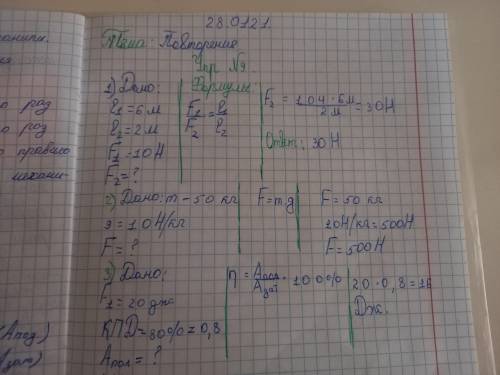 28.0121.
Тема: Повторение
Упр. №9.
1) Дано:
l1 = 6 м
l2 = 2 м
F1 - 10 Н
F2 = ?
Формулы:
F1/F2 = l1/l2
F2 = 10Н · 6м / 2м = 30Н
Ответ: 30Н
2) Дано: m - 50 кг
g = 10Н/кг
F = ?
F = mg
F = 50 кг
10Н/кг = 500Н
F = 500Н
3) Дано:
F1 = 20 дж
КПД = 80% = 0,8
Aпол = ?
η = Aпол/Aзат · 100%
20 · 0,8 = 16
Дж.
о раз
о раз
правило
механи-